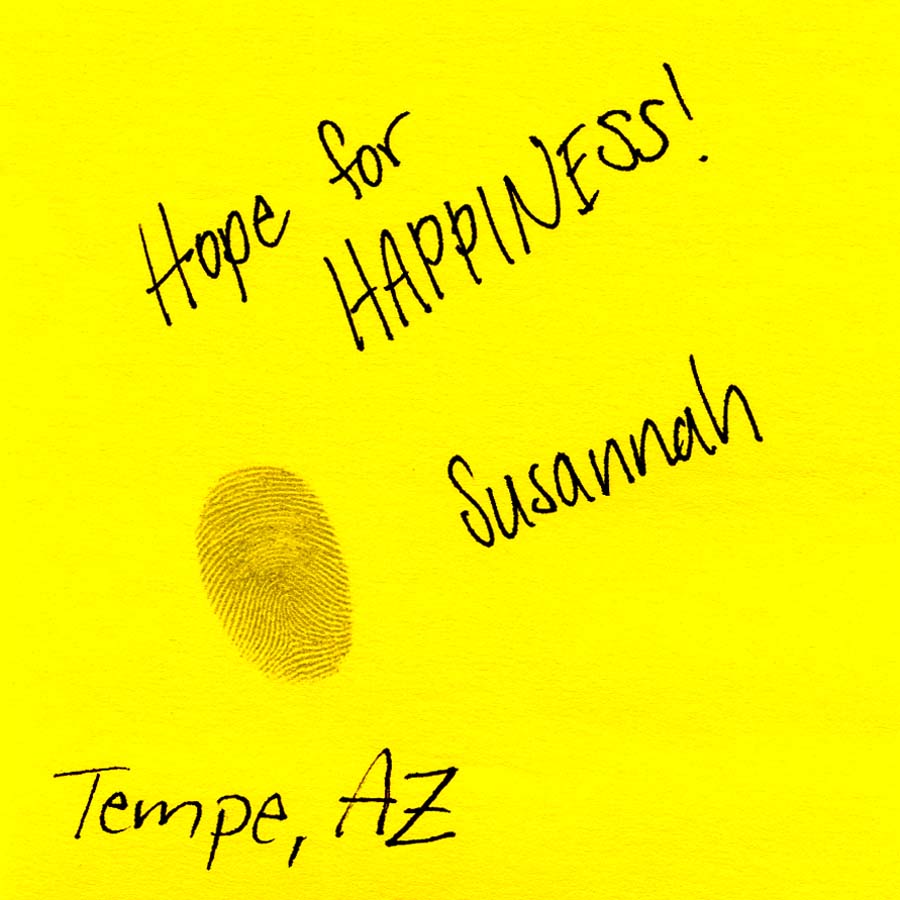 Hope for
HAPPINESS!
Susannah
Tempe, AZ